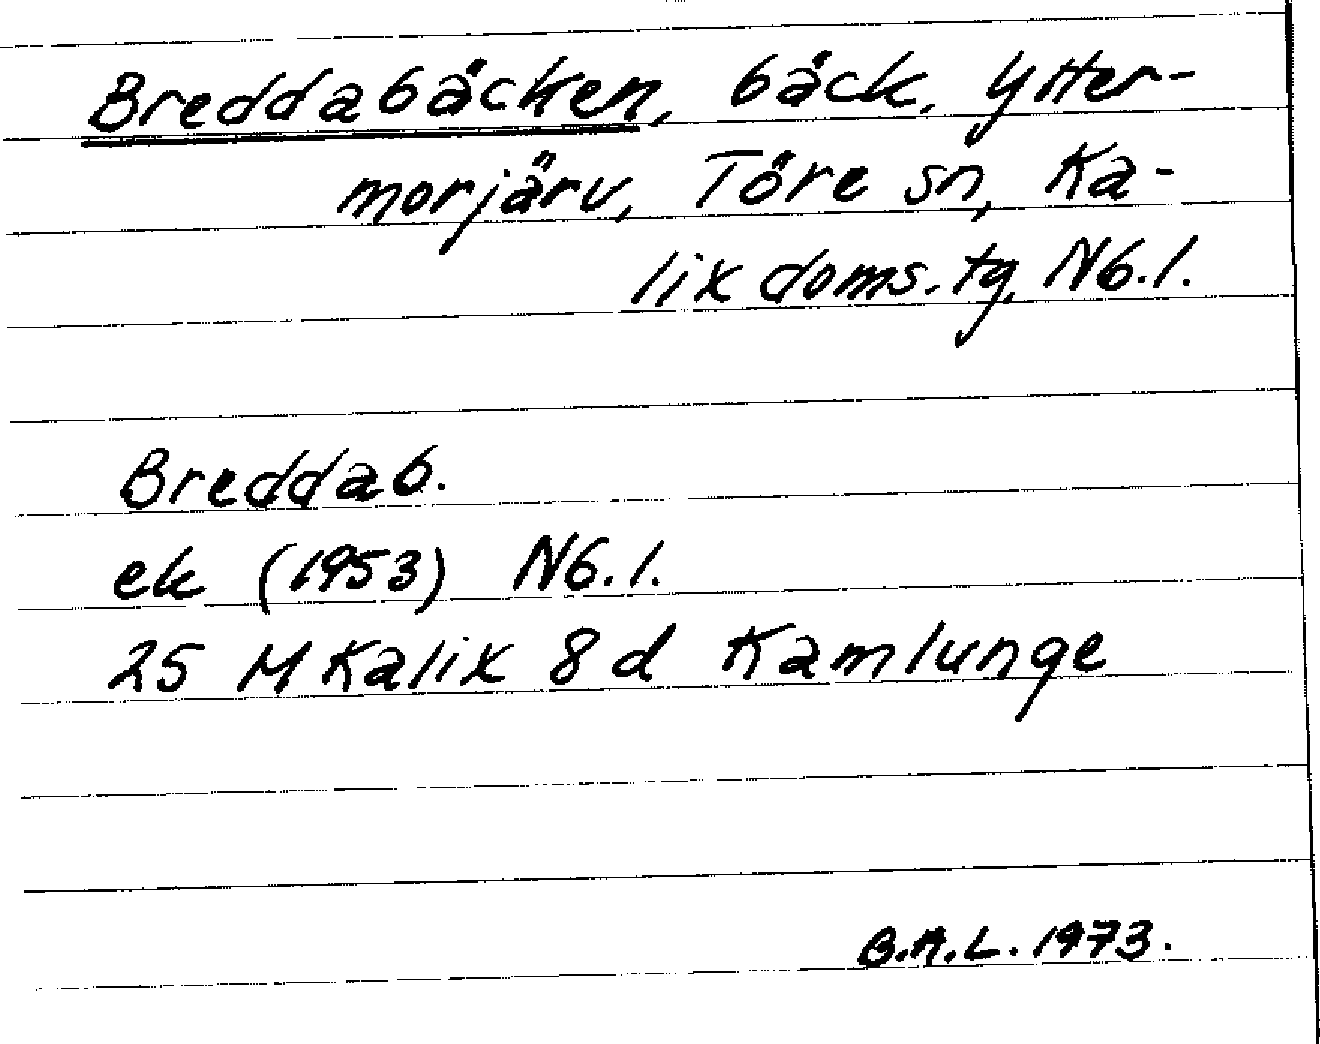 Breddabäcken, bäck, Ytter-
morjärv, Töre sn, Ka-
lix doms.tg, Nb.l.
Breddab.
ek (1953) Nb.l.
25 M Kalix 8 d Kamlunge
B.A.L. 1973.